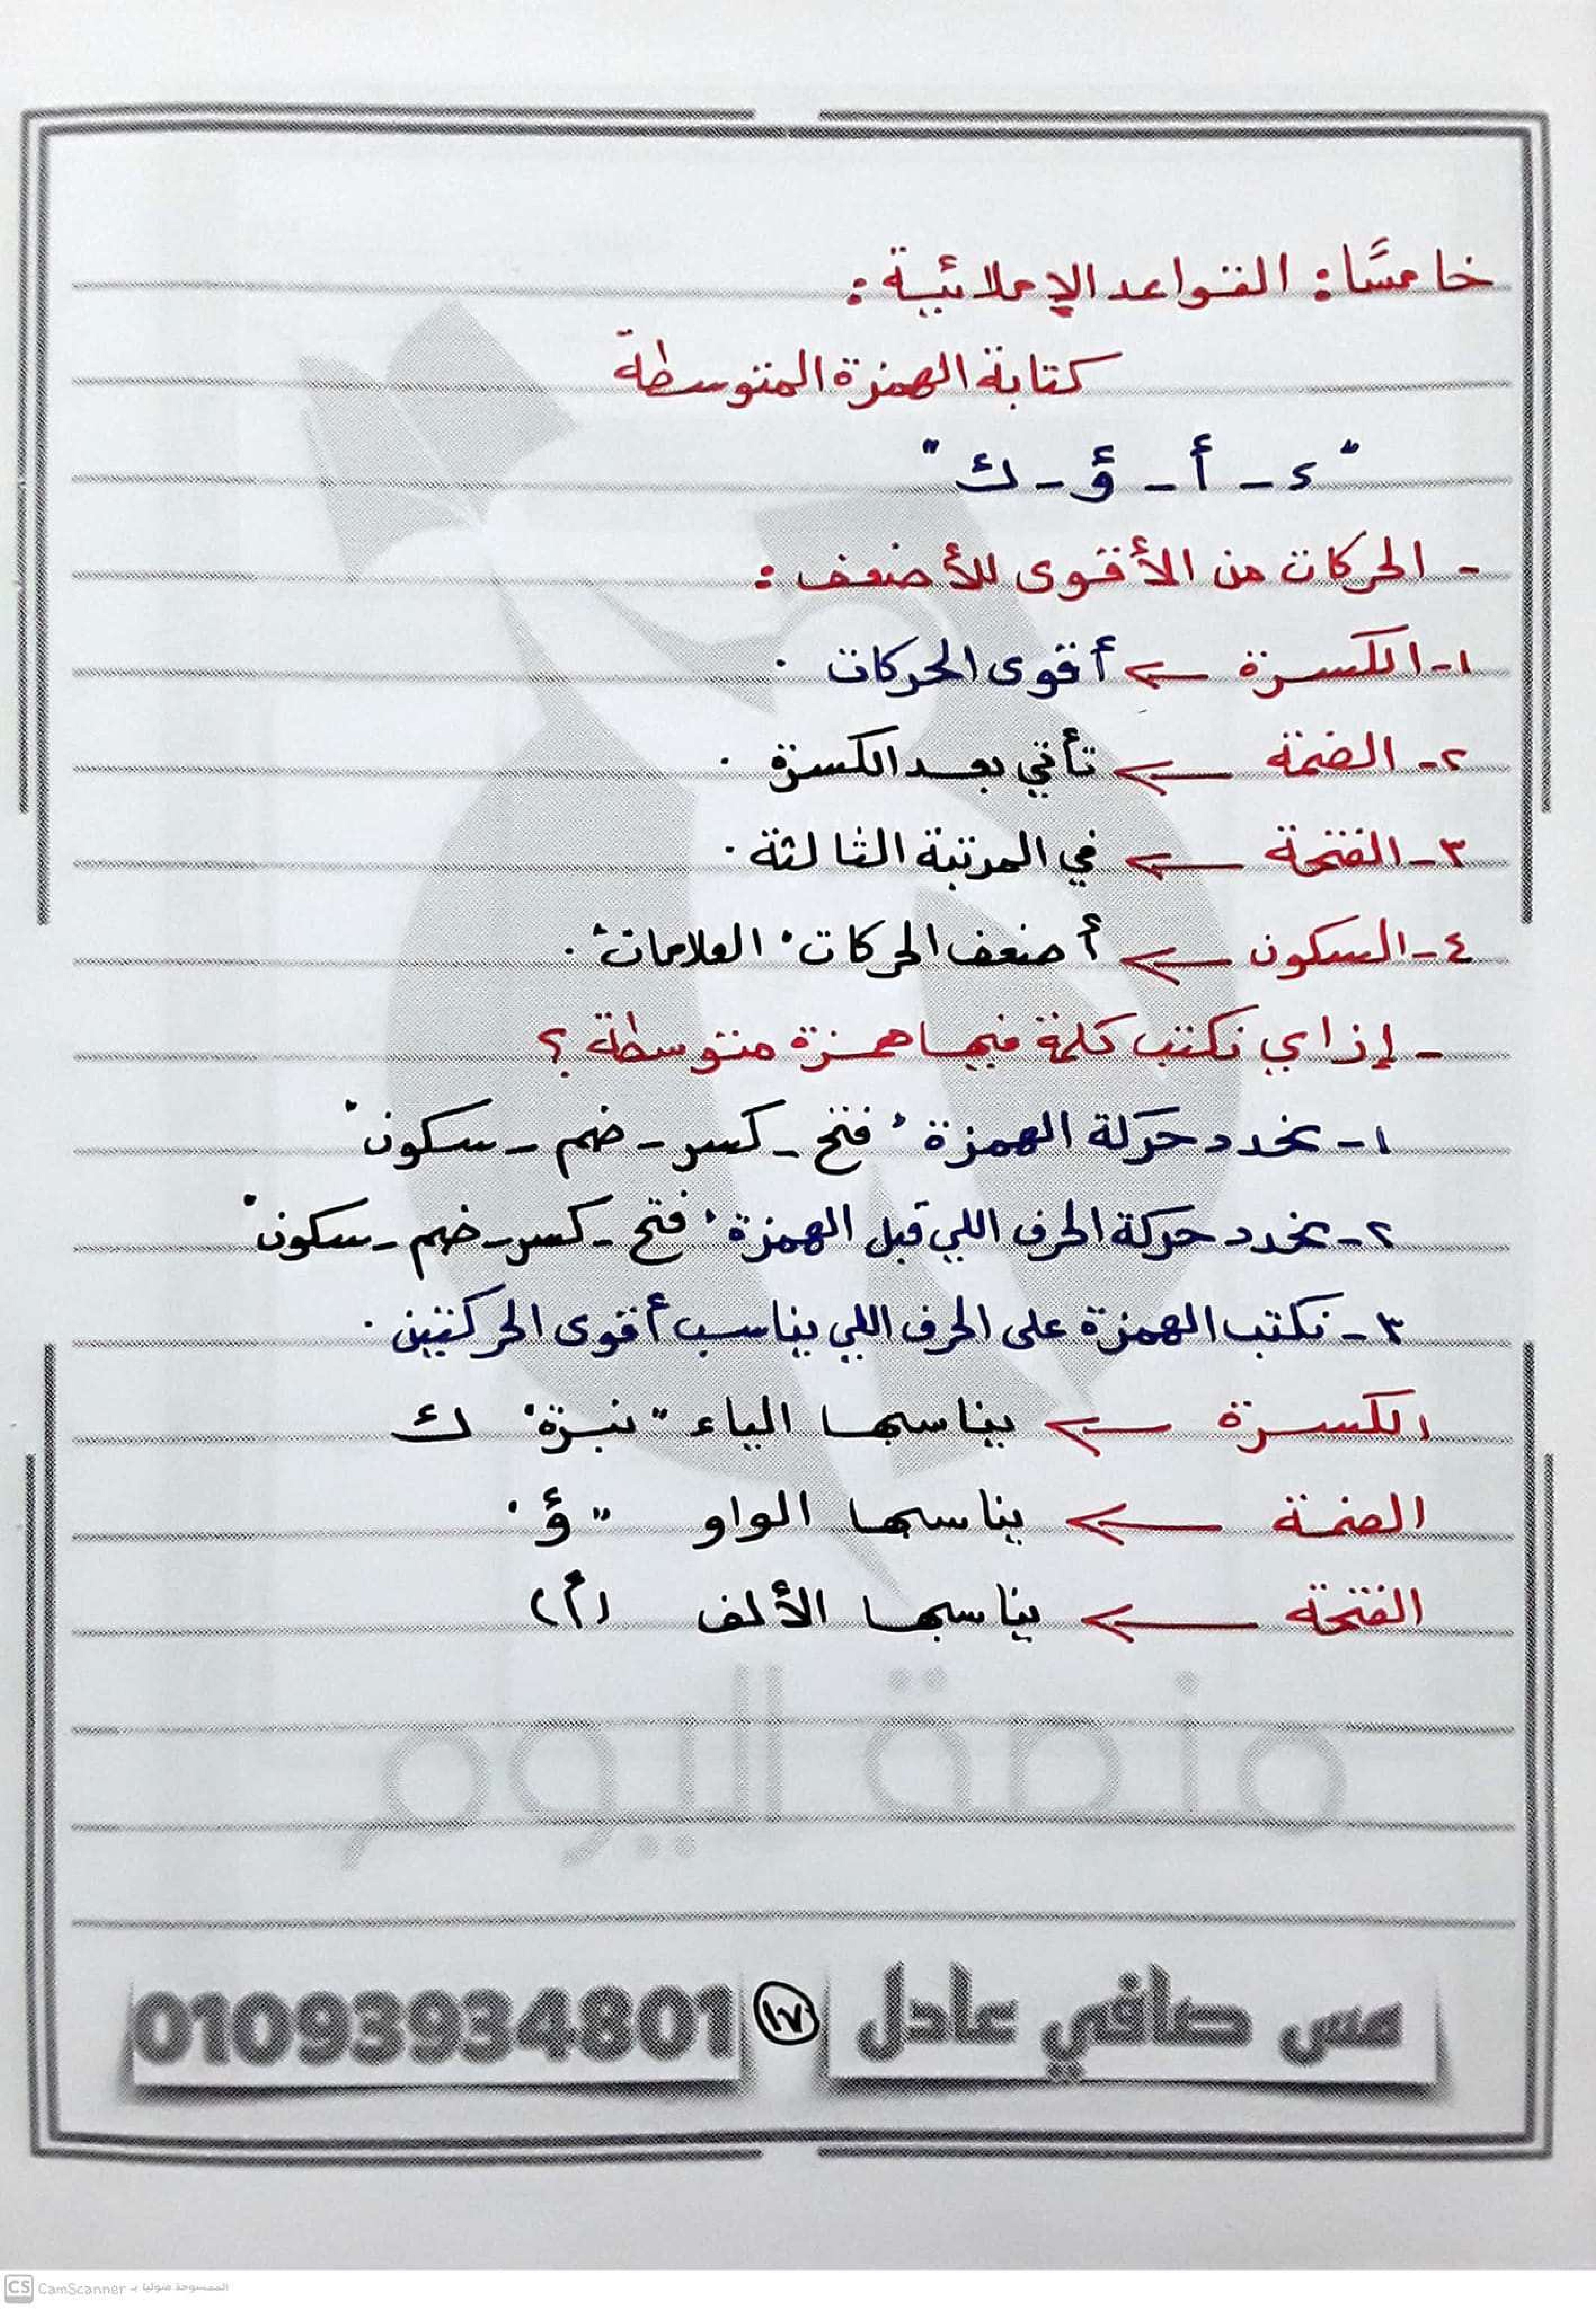 خامسًا: القواعد الإملائية:
كتابة الهمزة المتوسطة
"ء - أ - ؤ - ئـ"
- الحركات من الأقوى للأضعف:
١- الكسرة ← أقوى الحركات.
٢- الضمة ← تأتي بعد الكسرة.
٣- الفتحة ← في المرتبة الثالثة.
٤- السكون ← أضعف الحركات "العلامات".
- إزاي نكتب كلمة فيها همزة متوسطة؟
١- نحدد حركة الهمزة "فتح - كسر - ضم - سكون"
٢- نحدد حركة الحرف اللي قبل الهمزة "فتح - كسر - ضم - سكون"
٣- نكتب الهمزة على الحرف اللي يناسب أقوى الحركتين.
الكسرة ← يناسبها الياء "نبرة" ئـ
الضمة ← يناسبها الواو "ؤ"
الفتحة ← يناسبها الألف (أ)
منصة اليوم
مس صافي عادل ١٧ 01093934801
CS CamScanner الممسوحة ضوئيا بـ